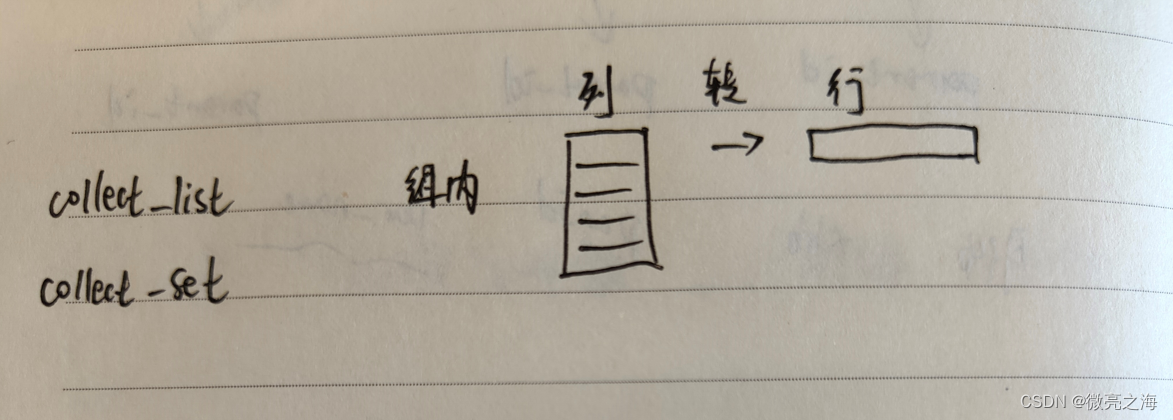 列 转 行
→
collect_list 组内
collect_set
CSDN @微亮之海